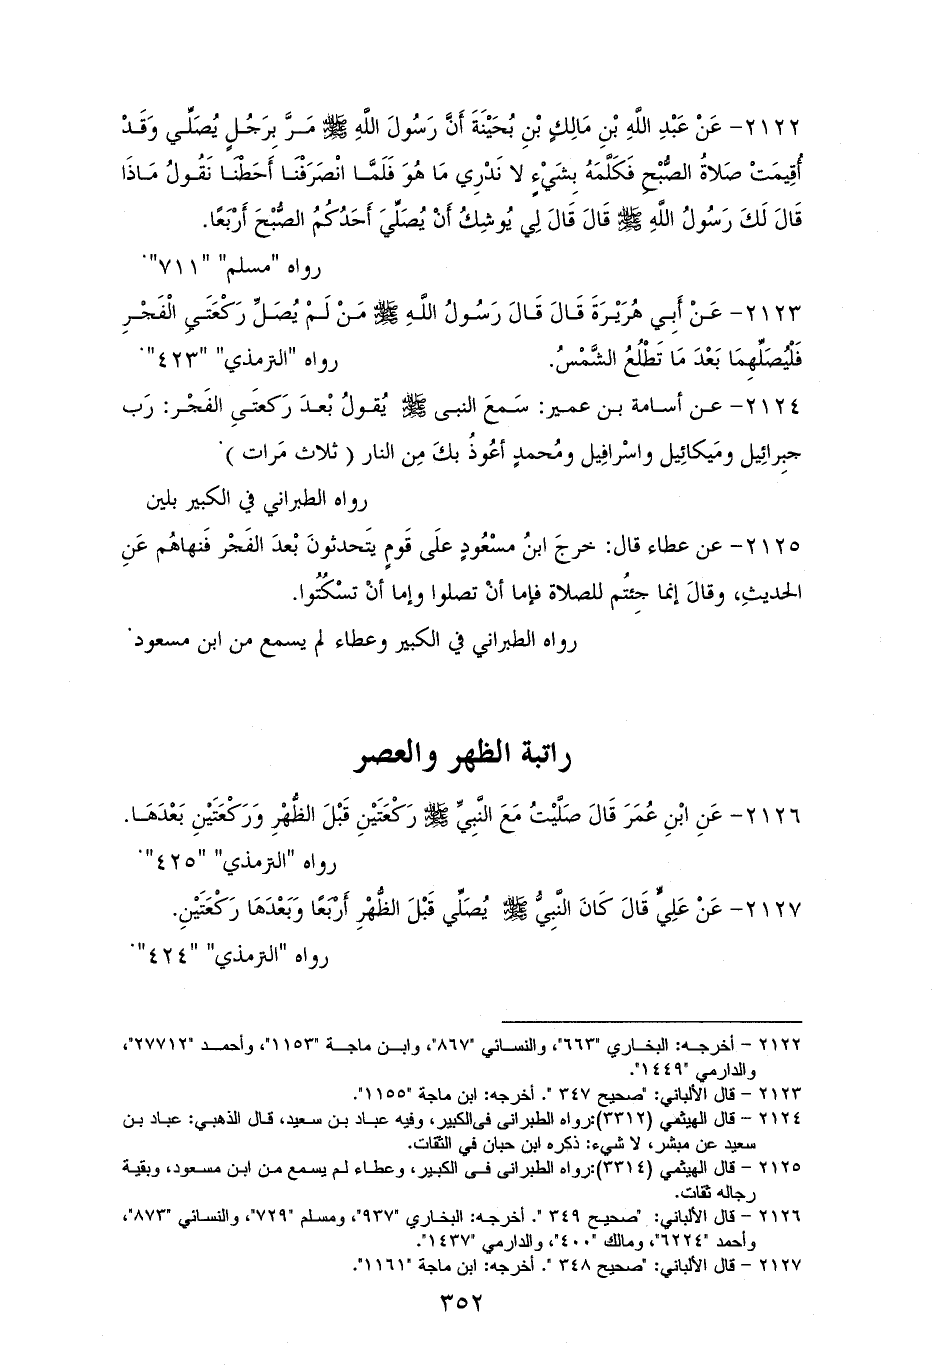 ٢١٢٢- عَنْ عَبْدِ اللَّهِ بْنِ مَالِكٍ بْنِ بُحَيْنَةَ أَنَّ رَسُولَ اللَّهِ ﷺ مَرَّ بِرَجُلٍ يُصَلِّي وَقَدْ
أُقِيمَتْ صَلاةُ الصُّبْحِ فَكَلَّمَهُ بِشَيْءٍ لا نَدْرِي مَا هُوَ فَلَمَّا انْصَرَفْنَا أَحَطْنَا نَقُولُ مَاذَا
قَالَ لَكَ رَسُولُ اللَّهِ ﷺ قَالَ قَالَ لِي يُوشِكُ أَنْ يُصَلِّيَ أَحَدُكُمُ الصُّبْحَ أَرْبَعًا.
رواه "مسلم" "٧١١".
٢١٢٣- عَنْ أَبِي هُرَيْرَةَ قَالَ قَالَ رَسُولُ اللَّهِ ﷺ مَنْ لَمْ يُصَلِّ رَكْعَتَيِ الْفَجْرِ
فَلْيُصَلِّهِمَا بَعْدَ مَا تَطْلُعُ الشَّمْسُ. رواه "الترمذي" "٤٢٣".
٢١٢٤- عن أسامة بن عمير: سَمعَ النبى ﷺ يُقولُ بْعدَ رَكعتَىِ الفَجْر: رَب
جبرائِيل ومَيكائِيل واسْرافِيل ومُحمدٍ أعُوذُ بكَ مِن النار ( ثلاث مَرات ).
رواه الطبراني في الكبير بلين
٢١٢٥- عن عطاء قال: خرجَ ابنُ مسْعُودٍ علَى قَومٍ يتَحدثونَ بْعدَ الفَجْر فَنهاهُم عَنِ
الحديثِ، وقالَ إنما جِئتُم للصلاة فإما أنْ تصلوا وإما أنْ تسْكُتُوا.
رواه الطبراني في الكبير وعطاء لم يسمع من ابن مسعود.
راتبة الظهر والعصر
٢١٢٦- عَنِ ابْنِ عُمَرَ قَالَ صَلَّيْتُ مَعَ النَّبِيِّ ﷺ رَكْعَتَيْنِ قَبْلَ الظُّهْرِ وَرَكْعَتَيْنِ بَعْدَهَا.
رواه "الترمذي" "٤٢٥".
٢١٢٧- عَنْ عَلِيٍّ قَالَ كَانَ النَّبِيُّ ﷺ يُصَلِّي قَبْلَ الظُّهْرِ أَرْبَعًا وَبَعْدَهَا رَكْعَتَيْنِ.
رواه "الترمذي" "٤٢٤".
٢١٢٢ - أخرجه: البخاري "٦٦٣"، والنسائي "٨٦٧"، وابن ماجة "١١٥٣"، وأحمد "٢٧٧١٢"،
والدارمي "١٤٤٩".
٢١٢٣ - قال الألباني: "صحيح ٣٤٧ ". أخرجه: ابن ماجة "١١٥٥".
٢١٢٤ - قال الهيثمي (٣٣١٢):رواه الطبرانى فى الكبير، وفيه عباد بن سعيد، قال الذهبي: عباد بن
سعيد عن مبشر، لا شيء: ذكره ابن حبان في الثقات.
٢١٢٥ - قال الهيثمي (٣٣١٤):رواه الطبرانى فى الكبير، وعطاء لم يسمع من ابن مسعود، وبقية
رجاله ثقات.
٢١٢٦ - قال الألباني: "صحيح ٣٤٩ ". أخرجه: البخاري "٩٣٧"، ومسلم "٧٢٩"، والنسائي "٨٧٣"،
وأحمد "٦٢٢٤"، ومالك "٤٠٠"، والدارمي "١٤٣٧".
٢١٢٧ - قال الألباني: "صحيح ٣٤٨ ". أخرجه: ابن ماجة "١١٦١".
٣٥٢